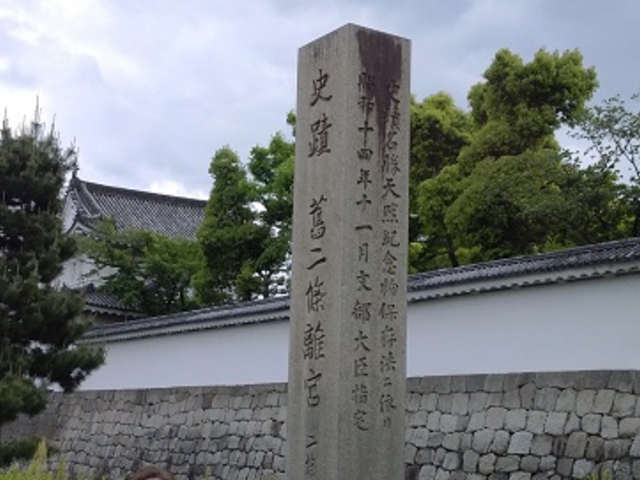 史蹟 舊二條離宮 二條
史蹟名勝天然紀念物保存法ニ依リ
昭和十四年十一月文部大臣指定